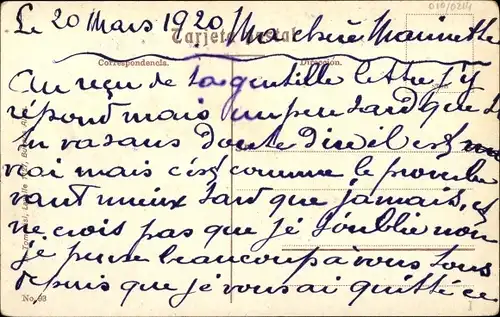 Le 20 Mars 1920 Ma chère Marinette
Tarjeta Postal
Correspondencia. Dirección.
Au reçu de ta gentille lettre j'y
répond mais un peu tard que
tu va sans doute dire il est
vrai mais c'est comme le proverbe
vaut mieux tard que jamais, et
ne crois pas que je t'oublie non
je pense beaucoup à vous tous
depuis que je vous ai quitté ce
No. 93